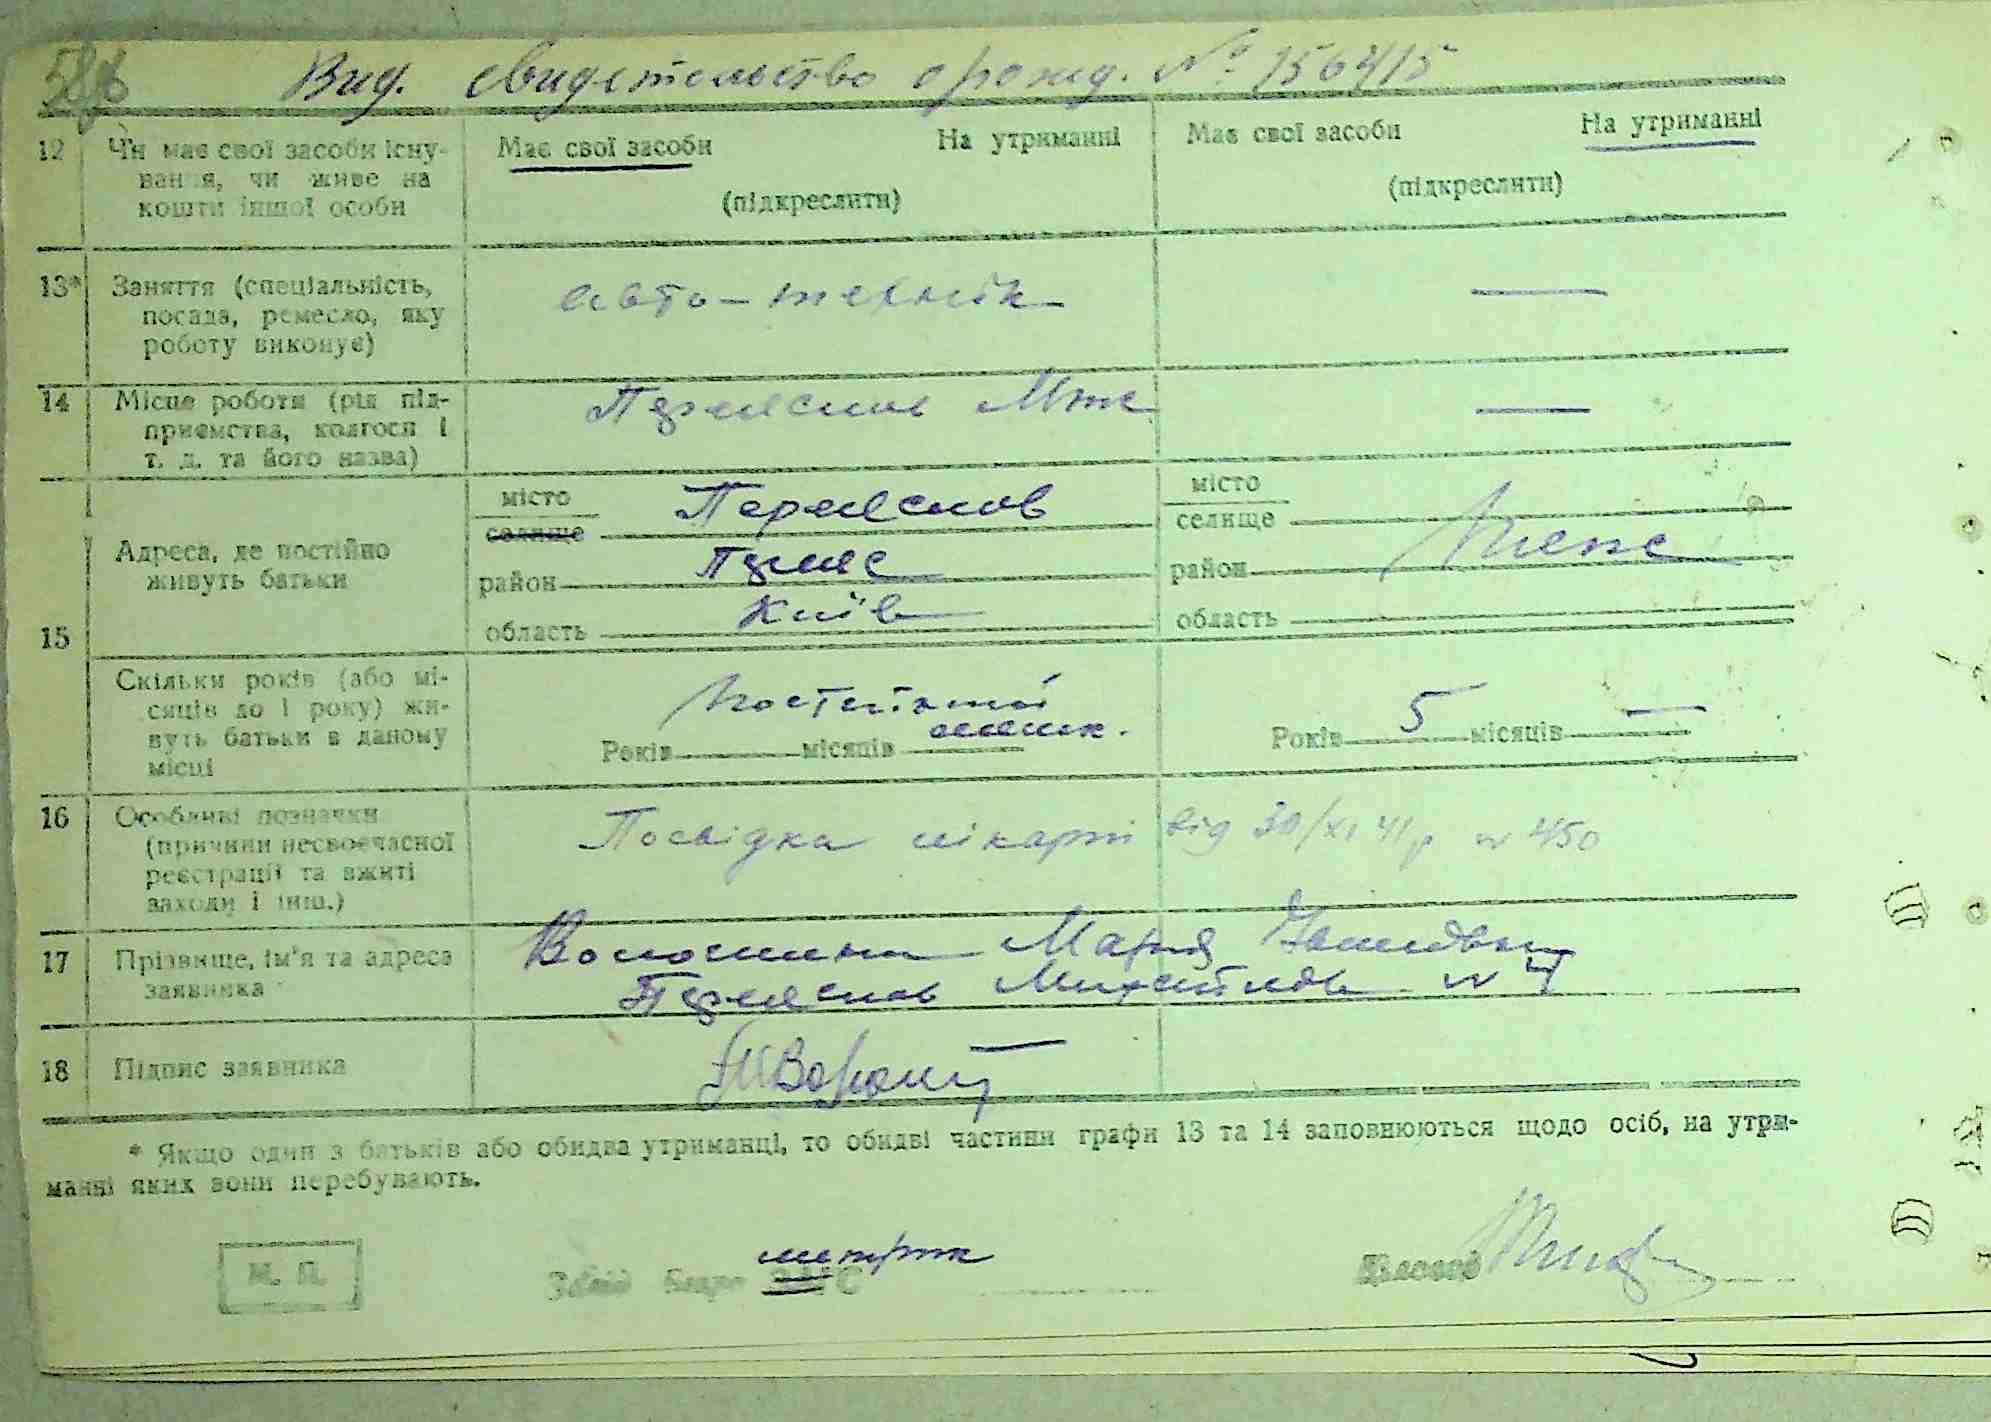 Вид. свидетельство о рожд. №
12 Чи має свої засоби існу-
вання, чи живе на
кошти іншої особи
Має свої засоби На утриманні
(підкреслити)
Має свої засоби На утриманні
(підкреслити)
13* Заняття (спеціальність,
посада, ремесло, яку
роботу виконує)
авто-технік —
14 Місце роботи (рід під-
приємства, колгосп і
т. д. та його назва)
Переяслов —
15 Адреса, де постійно
живуть батьки
місто Переяслов
селище
район Переяс
область Київ
місто
селище
район
область
Скільки років (або мі-
сяців до 1 року) жи-
вуть батьки в даному
місці
Постійний
мешк.
Років місяців
Років 5 місяців —
16 Особливі позначки
(причини несвоєчасної
реєстрації та вжиті
заходи і інш.)
Посвідка лікарні від 30/XI 41р № 450
17 Прізвище, ім'я та адреса
заявника
Волошина Мария
Переяслов
18 Підпис заявника
* Якщо один з батьків або обидва утриманці, то обидві частини графи 13 та 14 заповнюються щодо осіб, на утри-
манні яких вони перебувають.
М. П.
метрик
Завід бюро ЗАГС